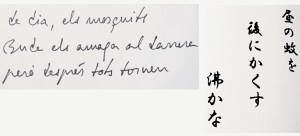 de dia, els mosquits
Buda els amaga al darrera
però després tots tornen
昼の蚊を
後にかくす
佛かな